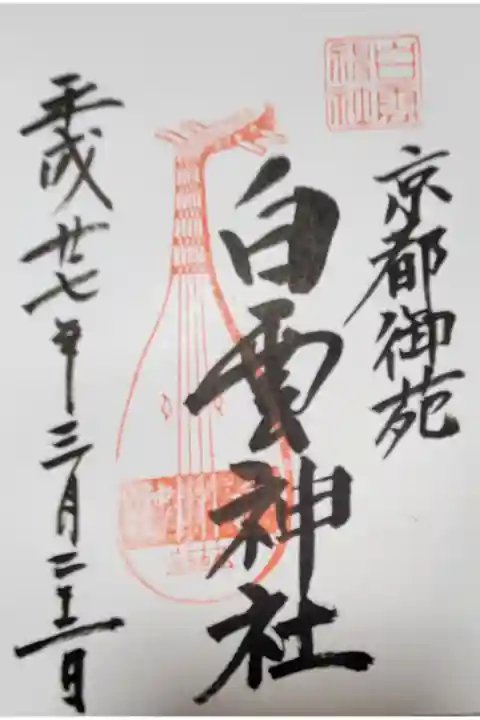 白雲神社
京都御苑
白雲神社
平成廿七年三月二十三日